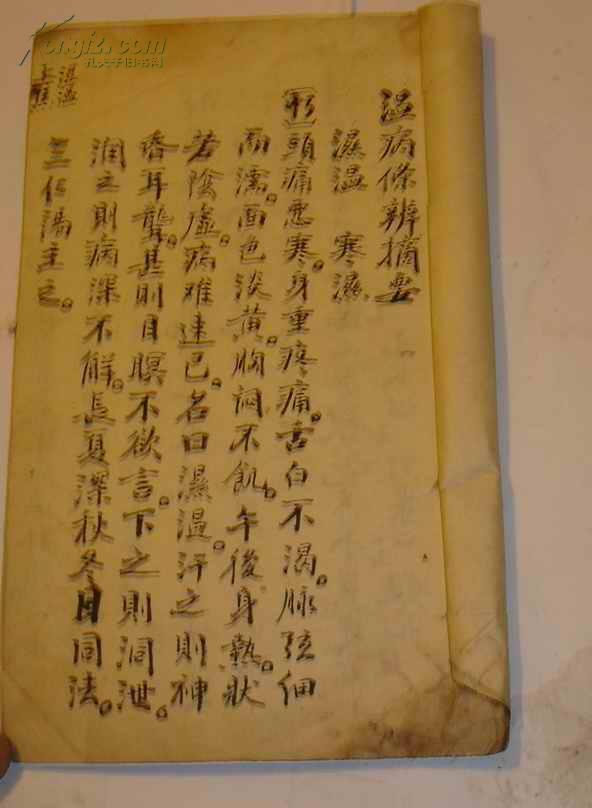 温病條辨摘要
濕温 寒濕
頭痛惡寒。身重疼痛。舌白不渴。脉弦細
而濡。面色淡黄。胸悶不飢。午後身熱。狀
若陰虛。病难速已。名曰濕温。汗之則神
昏耳聾。甚則目瞑不欲言。下之則洞泄。
润之則病深不解。長夏深秋冬日同法。
三仁湯主之。
濕温
上焦
kongfz.com
孔夫子旧书网